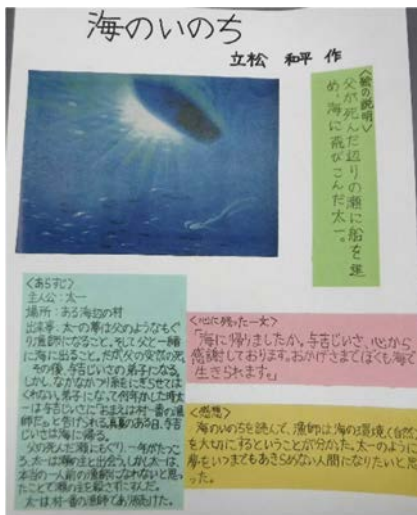 海のいのち
立松 和平 作
<絵の説明>
父が死んだ辺りの瀬に船を進
め、海に飛びこんだ太一。
<あらすじ>
主人公:太一
場所:ある海辺の村
出来事:太一の夢は父のようなもぐ
り漁師になること。そして父と一緒
に海に出ること。だが、父の突然の死。
その後、与吉じいさの弟子になる。
しかし、なかなかつり糸をにぎらせては
くれない。弟子になって何年かした時、太
一は与吉じいさに「おまえは村一番の漁
師だ。」と告げられる。真夏のある日、与吉
じいさは海に帰る。
父の死んだ瀬にもぐり、一年がたっこ
ろ、太一は瀬の主と出会う。しかし太一は、
本当の一人前の漁師になれないと思っ
たことで瀬の主を殺さずにすんだ。
太一は村一番の漁師であり続けた。
<心に残った一文>
「海に帰りましたか。与吉じいさ、心から
感謝しております。おかげさまでぼくも海で
生きられます。」
<感想>
海のいのちを読んで、漁師は海の環境(自然)
を大切にするということが分かった。太一のように
夢をいつまでもあきらめない人間になりたいと思
った。